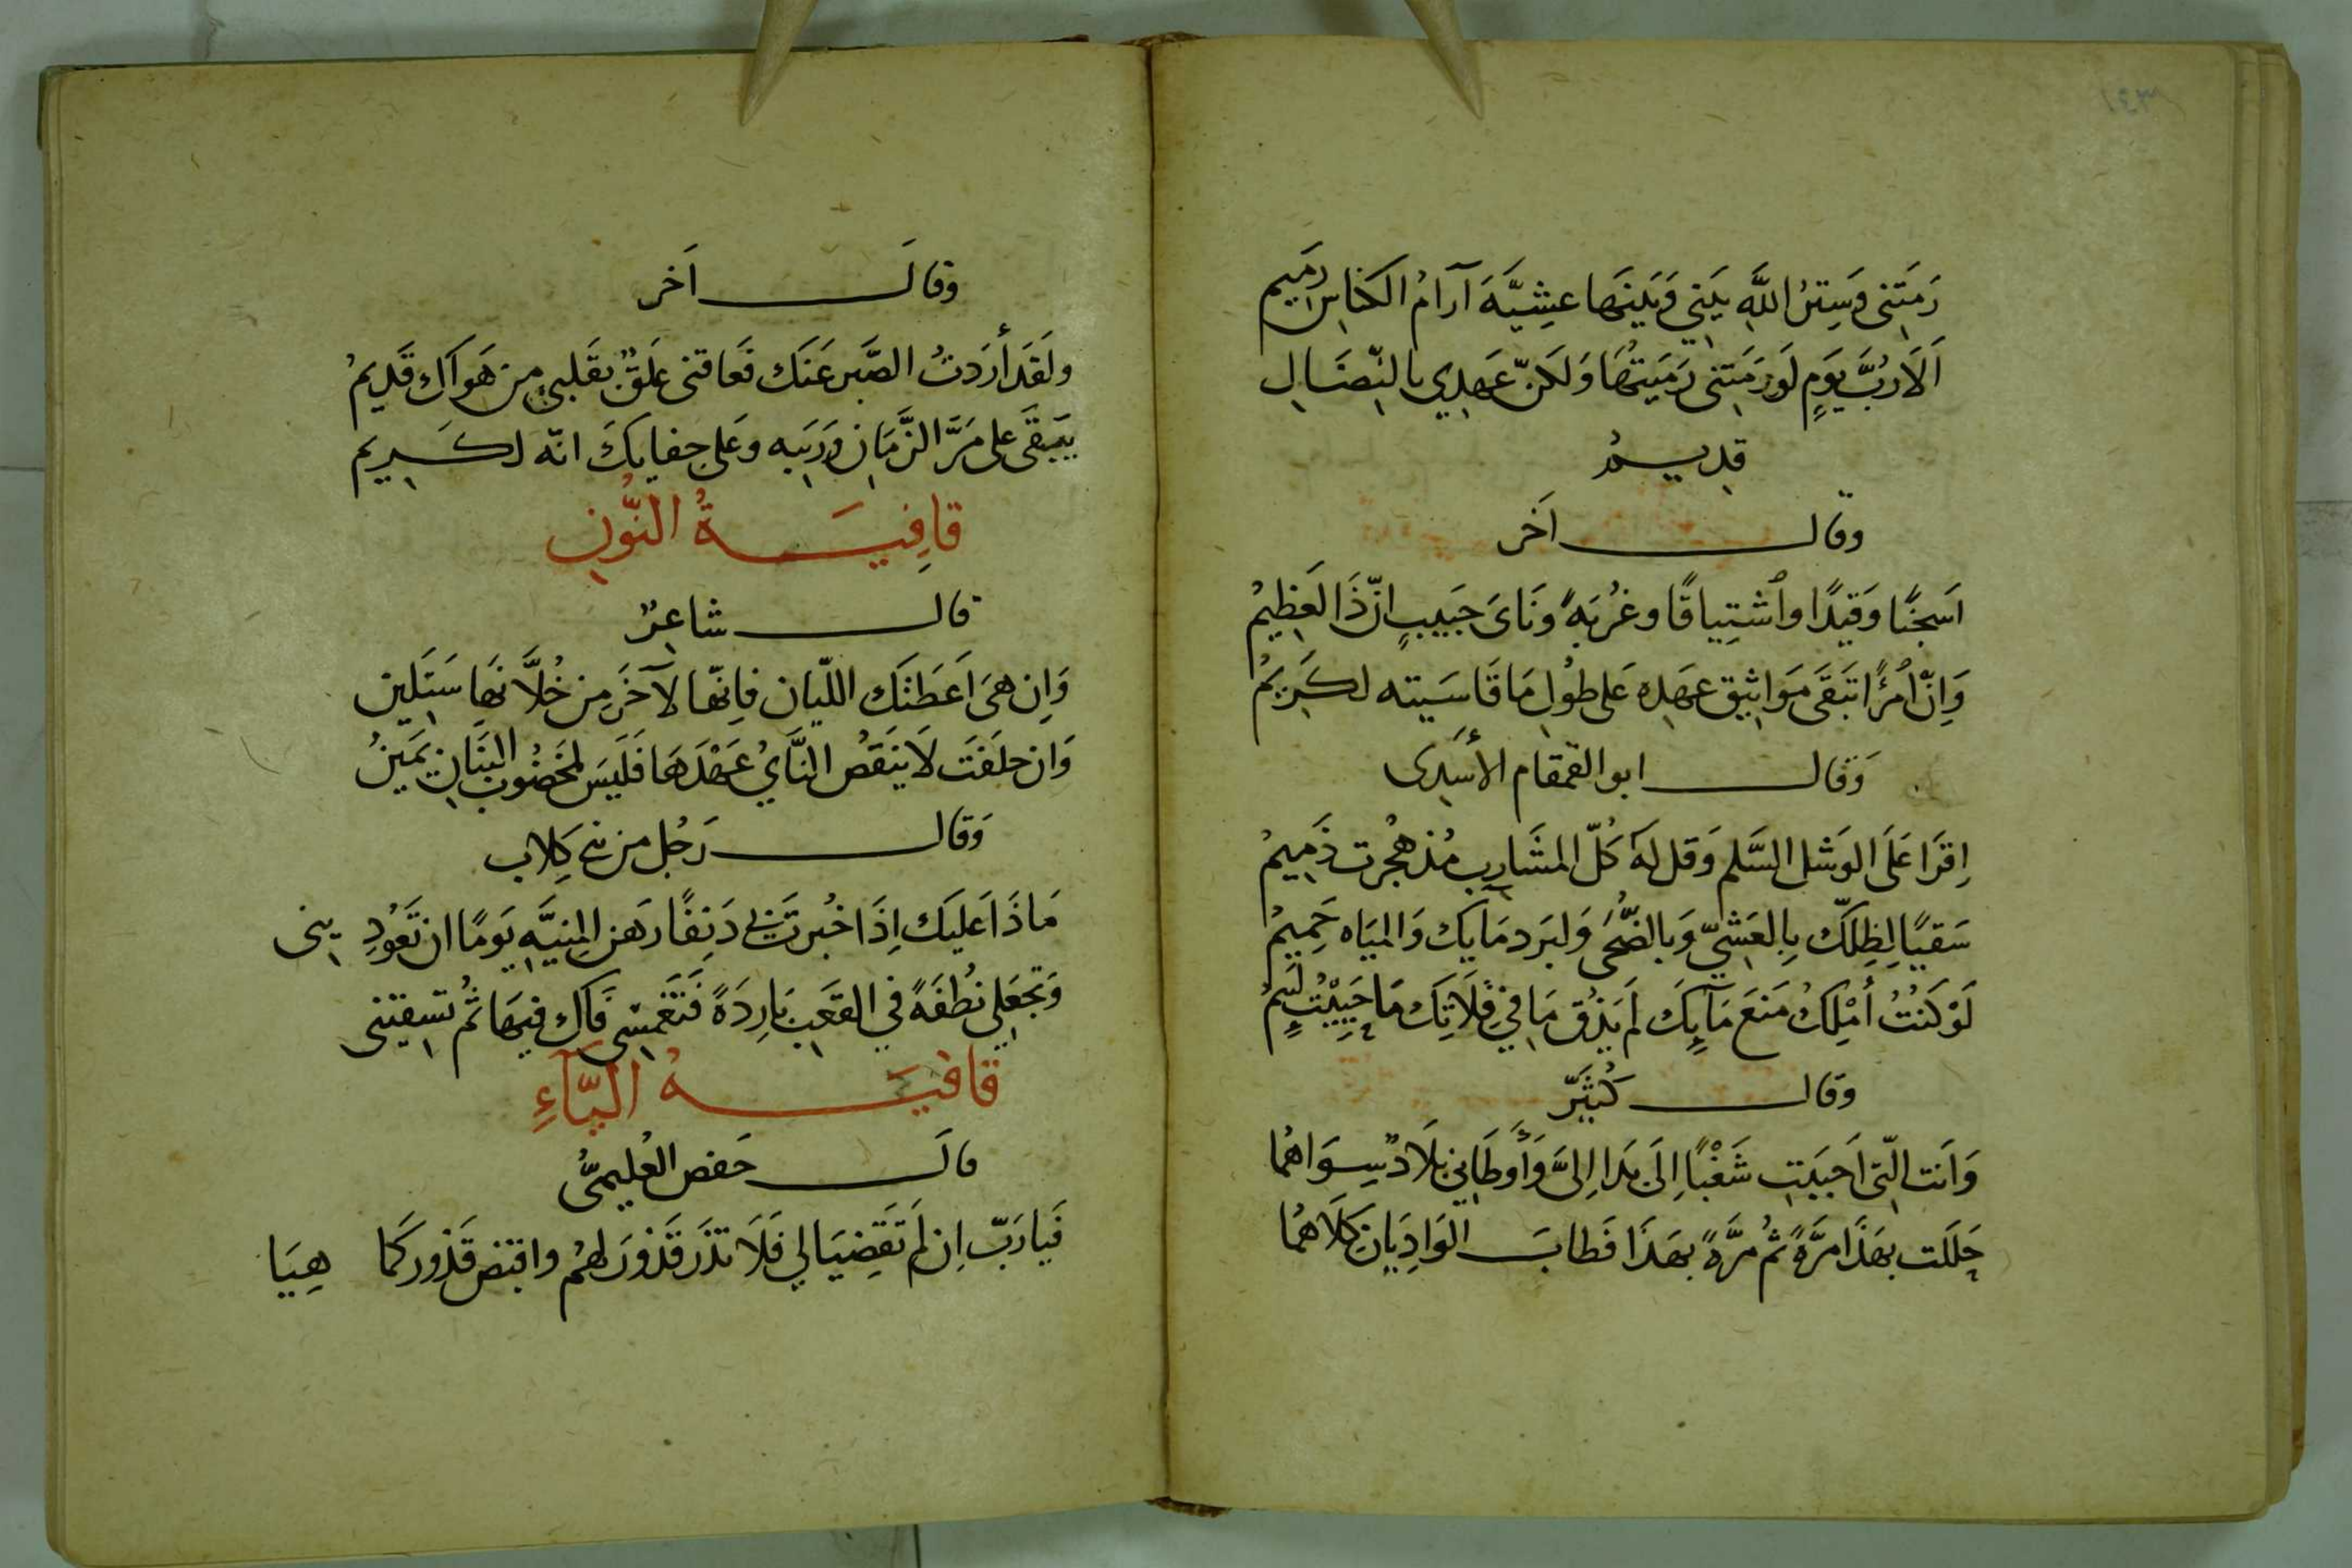 رَمَتَنِي وَسِترُ اللَّهِ بَيني وَبَينَها عشِيَّةَ آرامُ الكناسِ رَميم
اَلَارُبَّ يَومٍ لَو رَمَتَني رَمَيتُهَا وَلَكنّ عَهدِي بالنِّضَالِ
قدِيمُ
وقال اَخَر
اَسِجنًا وَقَيدًا واُشتِياقًا وغُربَةً وَنَاىَ حَبيبٍ انّ ذَا لعَظِيمُ
وَاِنّ اُمرًا تبَقَى مَوَاثِيق عهَدِهِ عَلى طُولِ مَا قَاسَيته لكَرِيمُ
وَقال ابو القمقام الأسَدِى
اِقرَا عَلَى الوَشَلِ السَّلم وَقل لهَ كُلّ المشَارِبِ مُذ هُجرت ذَمِيمُ
سَقيًا لِظِلِكّ بِالعَشىِّ وَبالضُّحَى وَلبَرد مَايِك وَالميَاه حَمِيمُ
لَوْ كَنُتُ أَمْلِكُ مَنعَ مَآيِكَ لَم يَذُق مَا في فِلَاتِكَ مَا حَيِيْتُ لَئِيمُ
وقال كُثَيّر
وَاَنت الّتي اَحبَبَتِ شَغْبًا اِلَى بَدَا اِلىَّ وَأَوطَاني بَلَادٌ سِوَاهُما
حَلَلَت بهَذَا مَرَّةً ثمُ مرَّةً بهَذَا فَطابَ الوَادِيَانِ كلَاهُمَا
وقالَ اَخر
ولَقَد أرَدتُ الصَّبَر عَنَك فَعاقنى عَلَقٌ بقَلبي مِن هَوَاك قَدِيمُ
يَبَقَى على مَرَّ الزَّمَان وَرَيَبِه وعَلى جفايكَ انّه لكَرِيم
قافِيَةُ النُّونِ
قال شاعِرٌ
وَاِن هىَ اَعطَتَك الليّان فاِنهّا لآخَرَ مِن خُلَّانهَا سَتَلِين
وَان حلَفَت لَا يَنَقضُ النَّايُ عَهْدَهَا فَلَيسَ لمخَضُوب البَنَانِ يَمَينُ
وَقال رَجُل مِن بني كِلَاب
مَاذَا عَليَك اِذَا خُبرتَني دَنِفًا رَهَن المنِيَّهِ يَومًا ان تَعَوُدِ يني
وَتجَعَلِي نُطفَةً في القعَبِ بَارِدَةً فَتغَمِسى فَاكِ فيهَا ثمُ تسِقيني
قافيَةُ اليَآءِ
قالَ حَفص العُليميُّ
فَيا رَبّ اِن لَم تَقضِيَا لي فَلَا تذَر قَذُورَ لهمُ واقبض قَذُور كَما هِيَا